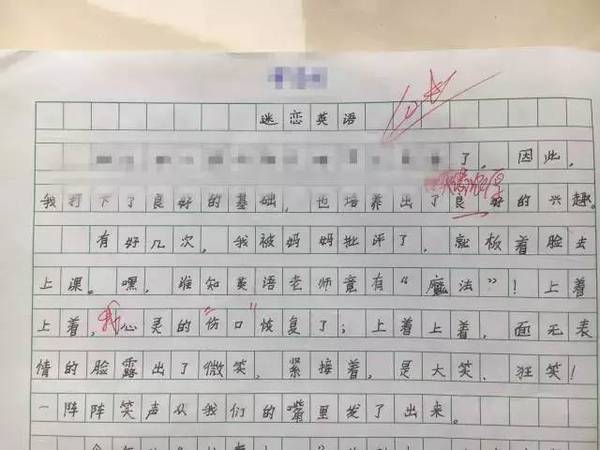 迷恋英语
了，因此，
我打下了良好的基础，也培养出了良好的兴趣。
有好几次，我被妈妈批评了，就板着脸去
上课。嘿，谁知英语老师竟有“魔法”！上着
上着，我心灵的“伤口”恢复了；上着上着，面无表
情的脸露出了微笑，紧接着，是大笑、狂笑！
一阵阵笑声从我们的嘴里发了出来。